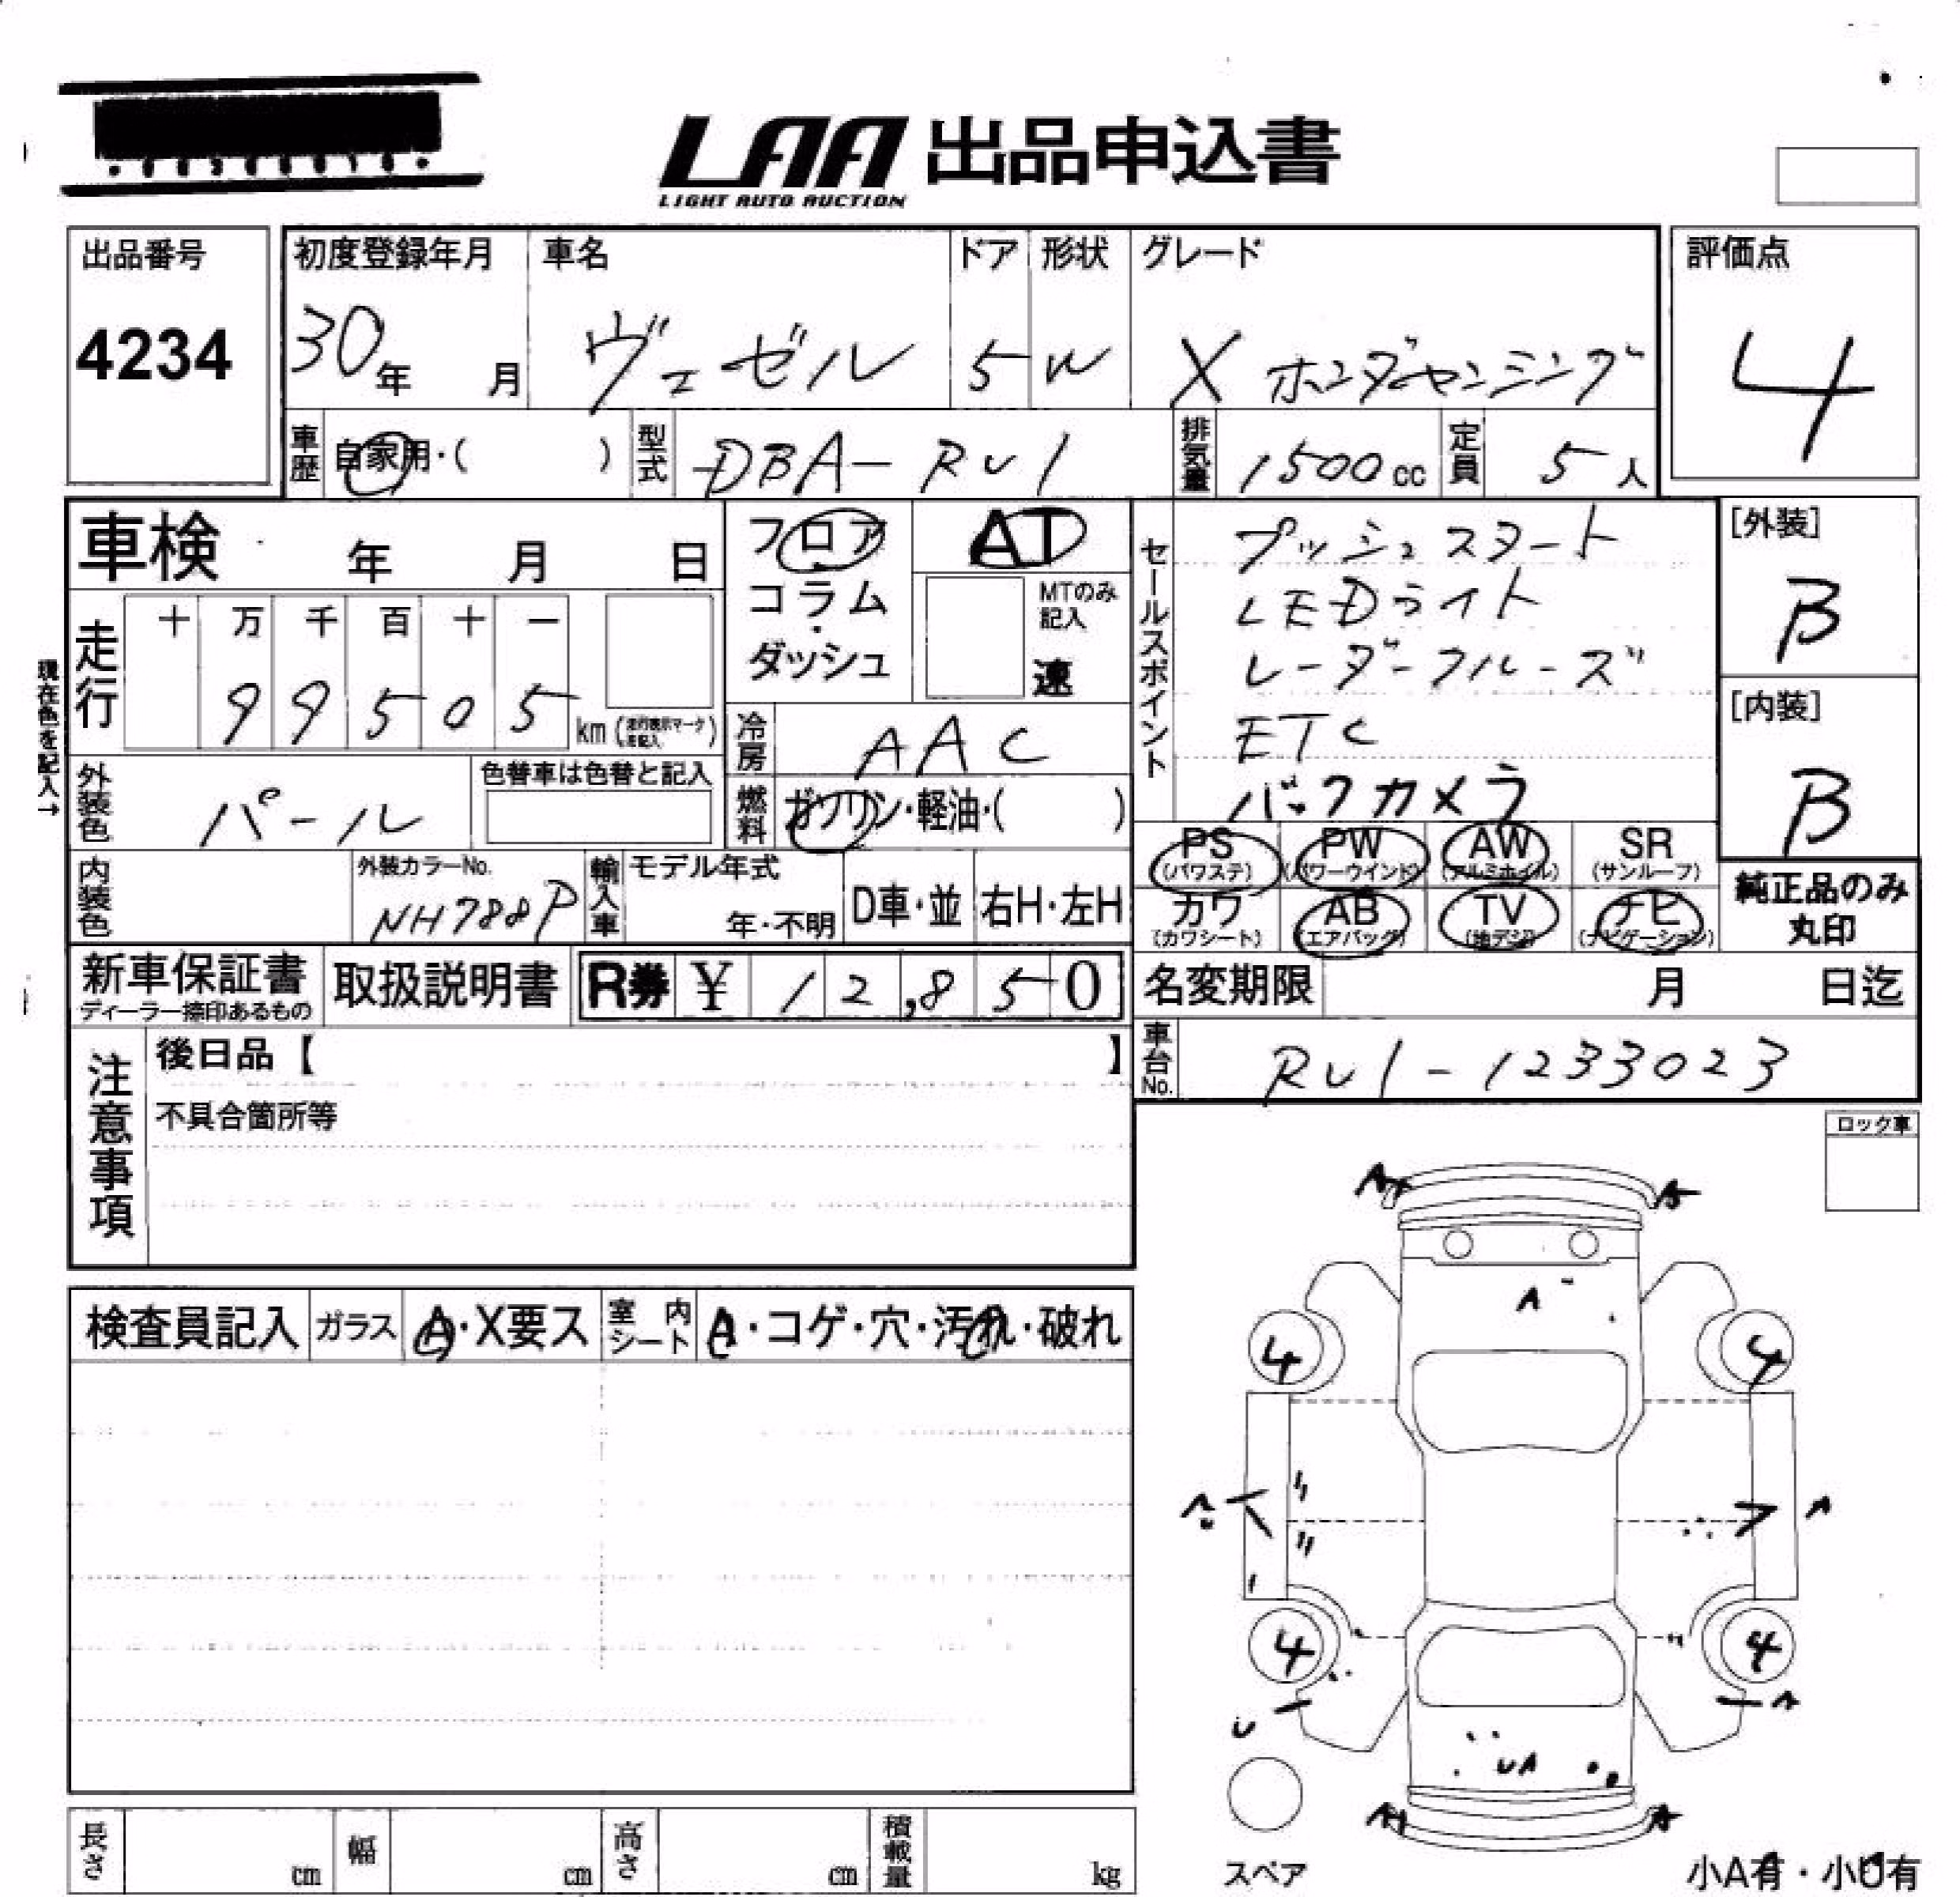 LAA 出品申込書
LIGHT AUTO AUCTION
出品番号
4234
初度登録年月
30年 月
車名
ヴェゼル
ドア
5
形状
W
グレード
X ホンダセンシング
評価点
4
車歴 自家用・( )
型式 DBA-RU1
排気量 1500cc
定員 5人
車検 年 月 日
フロア
コラム・
ダッシュ
AT
MTのみ
記入
速
セールスポイント
プッシュスタート
LEDライト
レーダークルーズ
ETC
バックカメラ
[外装]
B
[内装]
B
現在色を記入→
走行
十 万 千 百 十 一
9 9 5 0 5 km
冷房 AAC
外装色 パール
色替車は色替と記入
燃料 ガソリン・軽油・( )
PS PW AW SR
(パワステ) (パワーウインド) (アルミホイル) (サンルーフ)
カワ AB TV ナビ
(カワシート) (エアバッグ) (地デジ) (ナビゲーション)
純正品のみ
丸印
内装色
外装カラーNo.
NH788P
輸入車 モデル年式
年・不明
D車・並
右H・左H
新車保証書
ディーラー捺印あるもの
取扱説明書
R券 ¥ 12,850
名変期限 月 日迄
車台No. RU1-1233023
注意事項
後日品【 】
不具合箇所等
ロック車
検査員記入 ガラス A・X要ス 室内シート A・コゲ・穴・汚れ・破れ
A A
A
4 4
A A
4 4
U A
UA
A A
スペア
小A有・小U有
長さ cm 幅 cm 高さ cm 積載量 kg